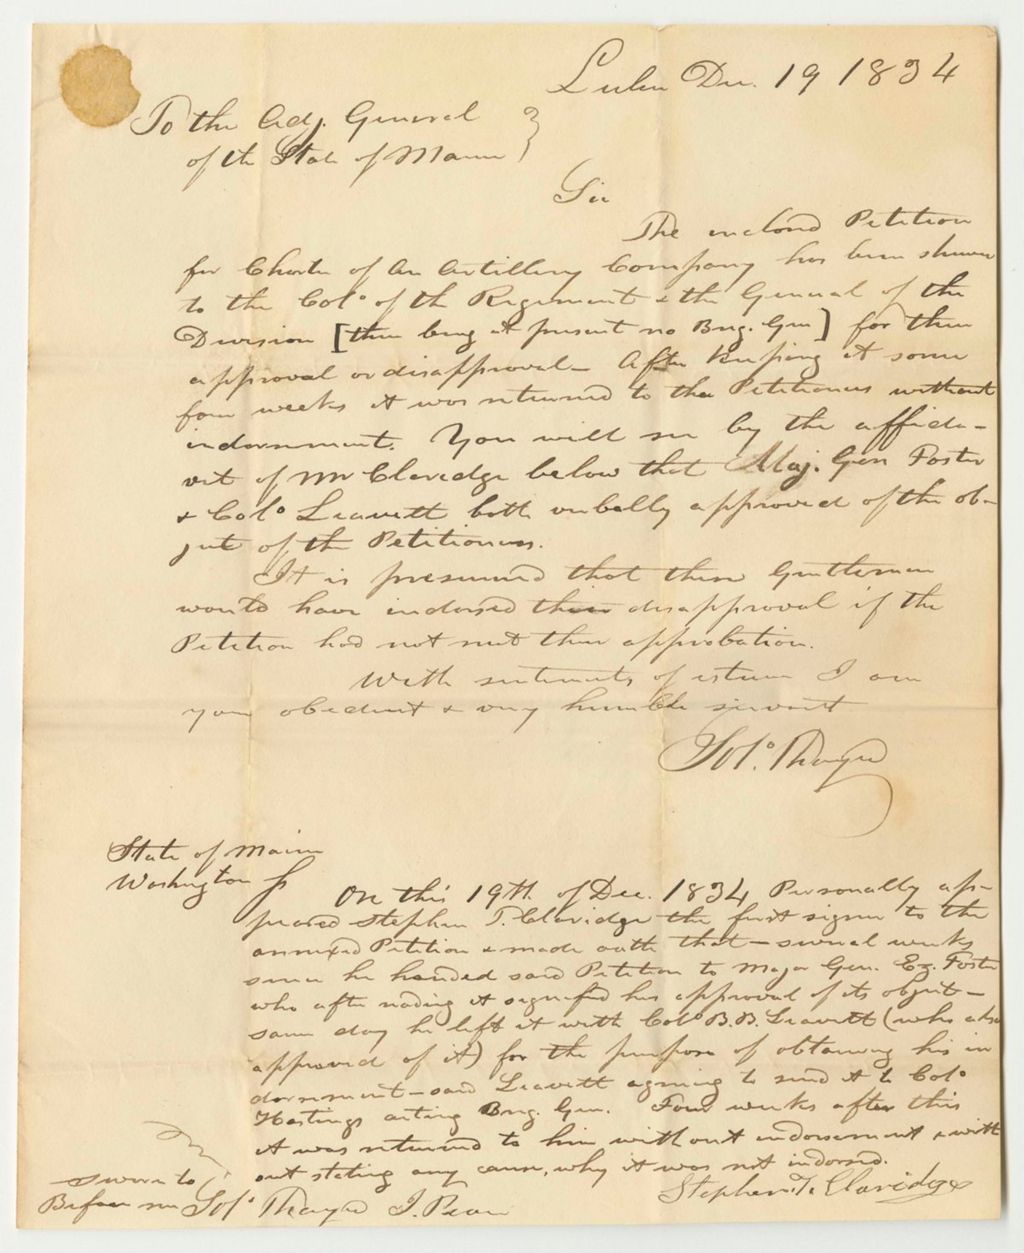 Lubec Dec. 19 1834
To the Adj. General }
of the State of Maine
Sir
The inclosd Petition
for Charter of an Artillery Company has been shewn
to the Colo of the Regiment & the General of the
Division [there being at present no Brig. Gen] for their
approval or disapproval - After keeping it some
four weeks it was returned to the Petitioners without
indorsment. You will see by the affida-
vit of Mr Claridge below that Maj. Gen Foster
& Colo Leavett both verbally approved of the ob-
ject of the Petitioners.
It is presumed that these Gentlemen
would have indorsed their disapproval if the
Petition had not met their approbation.
With sentiments of esteem I am
your obedient & very humble servant
Solo. Thayer
State of Maine
Washington ss
On this 19th. of Dec. 1834 Personally ap-
peared Stephen T. Claridge the first signer to the
annexed Petition & made oath that - several weeks
since he handed said Petition to Major Gen. Ez. Foster
who after reading it signifed his approval of its object -
same day he left it with Colo B.B. Leavett (who also
approved of it) for the purpose of obtaining his in
dorsement - said Leavett agreeing to send it to Colo
Hastings acting Brig. Gen. Four weeks after this
it was returned to him without indorsement & with
out stating any cause, why it was not indorsed.
Stephen T. Claridge
Sworn to
Before me Solo. Thayer J. Peace